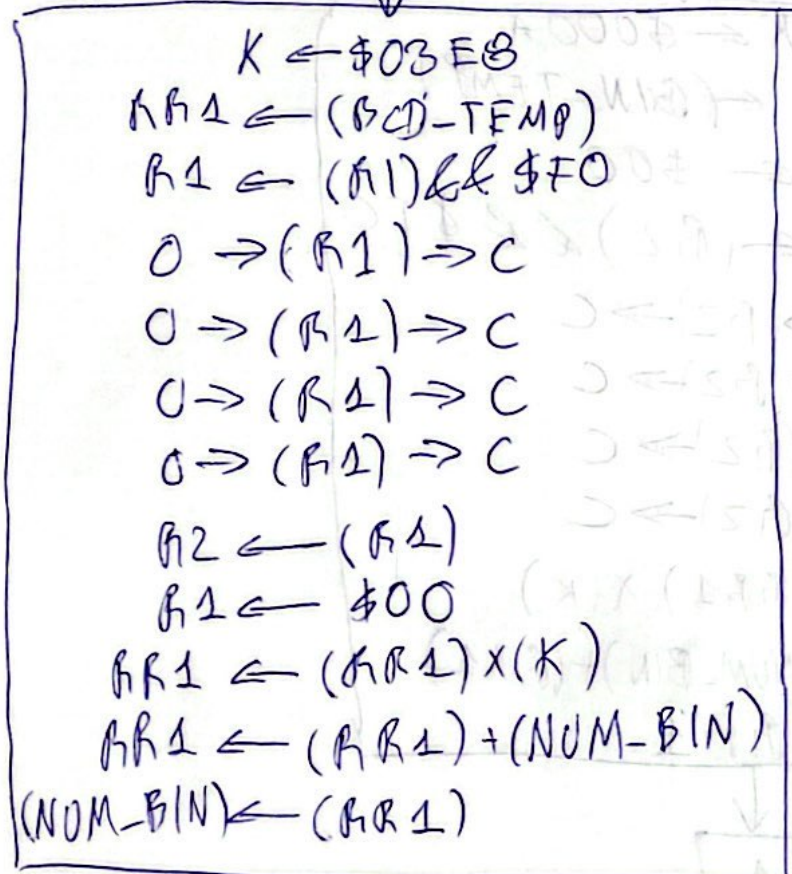 K ← $03E8
RR1 ← (BCD_TEMP)
R1 ← (R1)&& $F0
0 → (R1) → C
0 → (R1) → C
0 → (R1) → C
0 → (R1) → C
R2 ← (R1)
R1 ← $00
RR1 ← (RR1)X(K)
RR1 ← (RR1)+(NUM_BIN)
(NUM_BIN) ← (RR1)